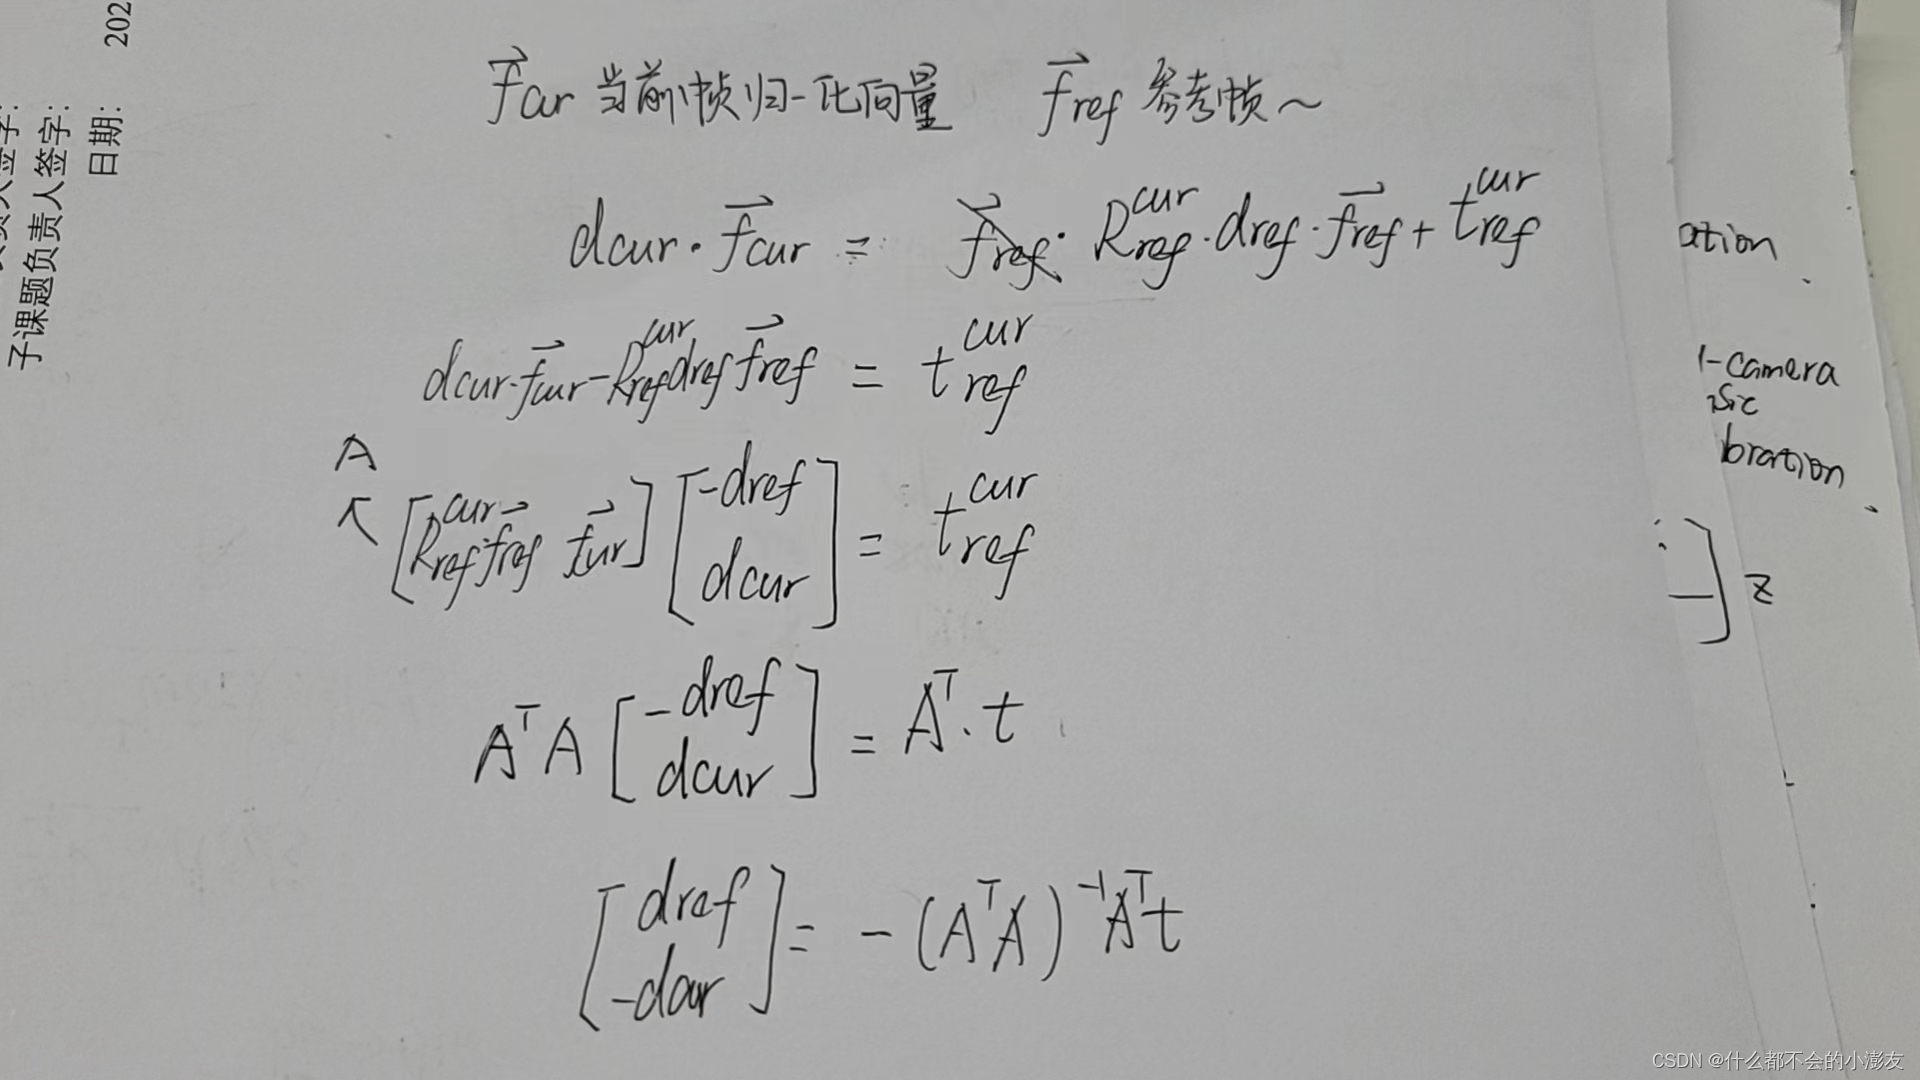 202
子课题负责人签字：
日期：
f⃗cur 当前帧归一化向量 f⃗ref 参考帧~
dcur·f⃗cur = R_ref^cur·dref·f⃗ref + t_ref^cur
dcur·f⃗cur - R_ref^cur dref f⃗ref = t_ref^cur
A
↖ [R_ref^cur·f⃗ref f⃗cur] [-dref dcur] = t_ref^cur
A^T A [-dref dcur] = A^T·t
[dref -dcur] = -(A^T A)^-1 A^T t
ation
1-camera
sic
bration
] z
CSDN @什么都不会的小澎友